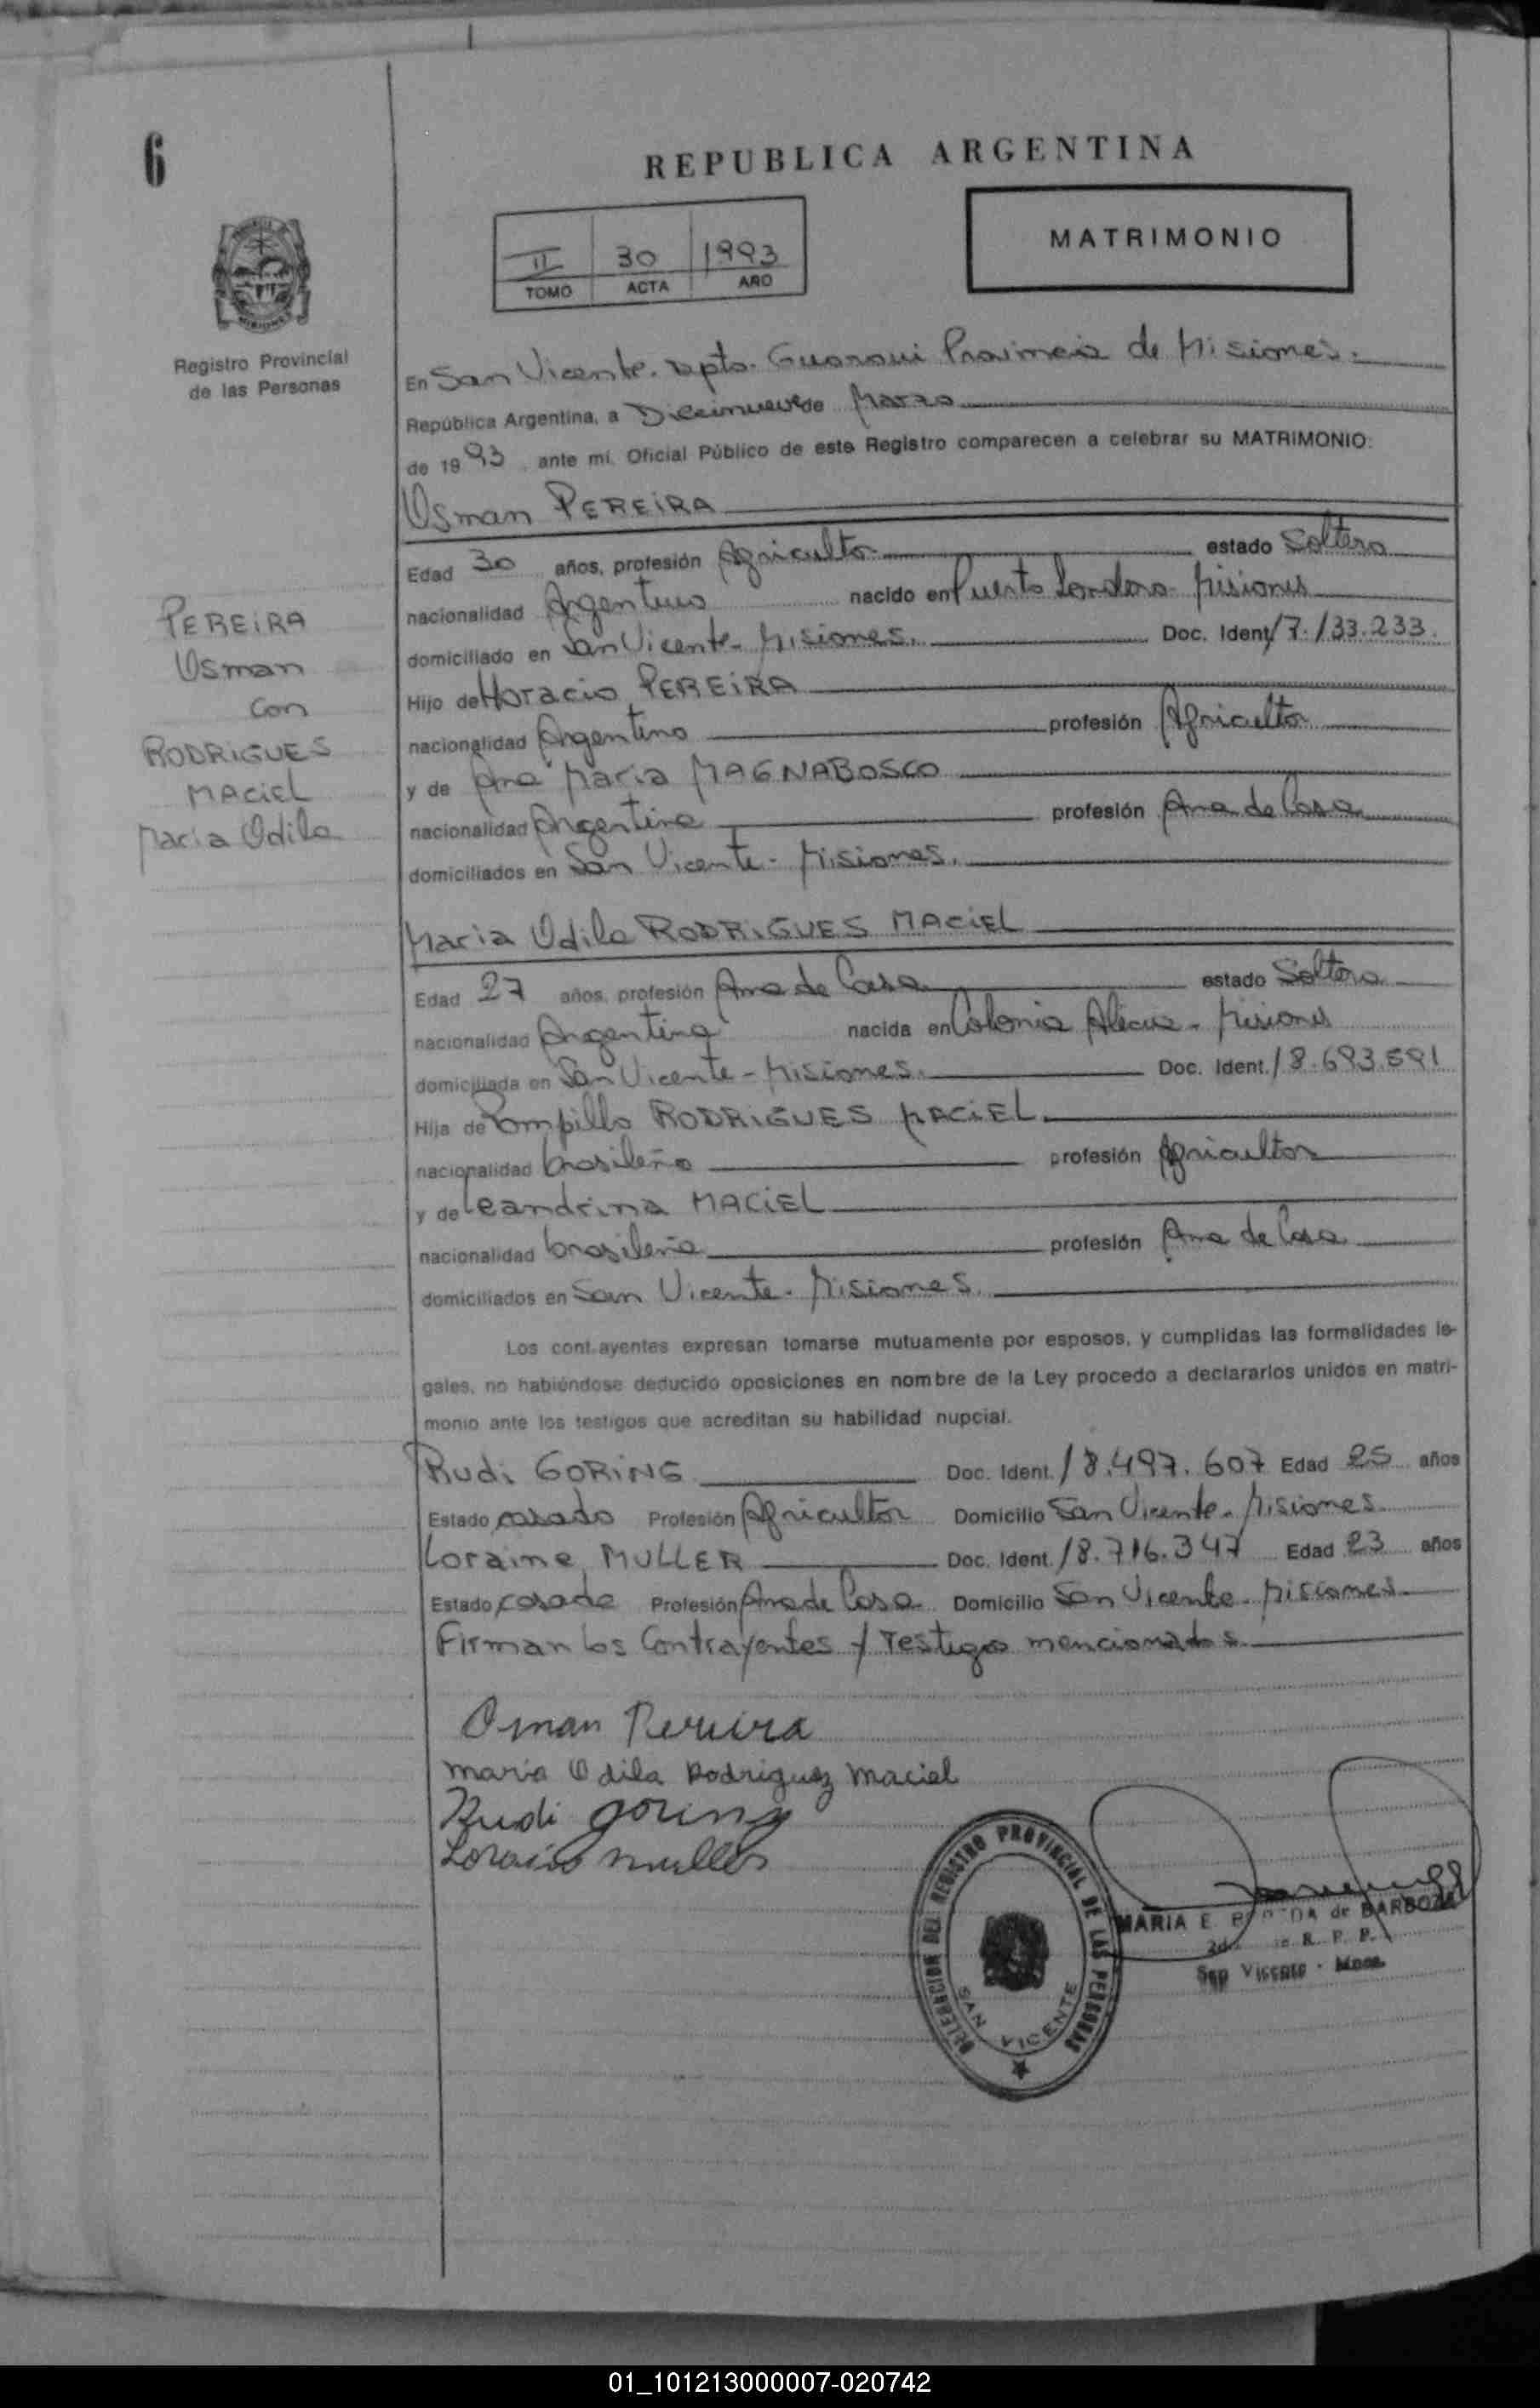 6
REPUBLICA ARGENTINA
MATRIMONIO
II 30 1993
TOMO ACTA AÑO
Registro Provincial
de las Personas
En San Vicente. dpto. Guarani Provincia de Misiones.
República Argentina, a Diecinueve de Marzo
de 1993 ante mí, Oficial Público de este Registro comparecen a celebrar su MATRIMONIO:
Osman PEREIRA
Edad 30 años, profesión Agricultor estado Soltero
nacionalidad Argentino nacido en Puerto Londero Misiones
domiciliado en San Vicente - Misiones. Doc. Ident. 17.133.233.
Hijo de Horacio PEREIRA
nacionalidad Argentino profesión Agricultor
y de Ana Maria MAGNABOSCO
nacionalidad Argentina profesión Ama de Casa
domiciliados en San Vicente - Misiones.
PEREIRA
Osman
Con
RODRIGUES
MACIEL
Maria Odila
Maria Odila RODRIGUES MACIEL
Edad 27 años, profesión Ama de Casa estado Soltera
nacionalidad Argentina nacida en Colonia Alicia - Misiones
domiciliada en San Vicente - Misiones. Doc. Ident. 18.693.591
Hija de Pompillo RODRIGUES MACIEL
nacionalidad brasileño profesión Agricultor
y de Leandrina MACIEL
nacionalidad brasileña profesión Ama de Casa
domiciliados en San Vicente - Misiones.
Los contrayentes expresan tomarse mutuamente por esposos, y cumplidas las formalidades le-
gales, no habiéndose deducido oposiciones en nombre de la Ley procedo a declararlos unidos en matri-
monio ante los testigos que acreditan su habilidad nupcial.
Rudi GORING Doc. Ident. 18.497.607 Edad 25 años
Estado casado Profesión Agricultor Domicilio San Vicente - Misiones
Loraine MULLER Doc. Ident. 18.716.347 Edad 23 años
Estado casada Profesión Ama de Casa Domicilio San Vicente - Misiones
Firman los Contrayentes y Testigos mencionados.
Osman Pereira
maria Odila Rodriguez Maciel
Rudi goring
Loraine muller
DELEGACION DEL REGISTRO PROVINCIAL DE LAS PERSONAS
SAN VICENTE
MARIA E. de BARBOZA
R. P. P.
San Vicente - Mnes.
01_101213000007-020742